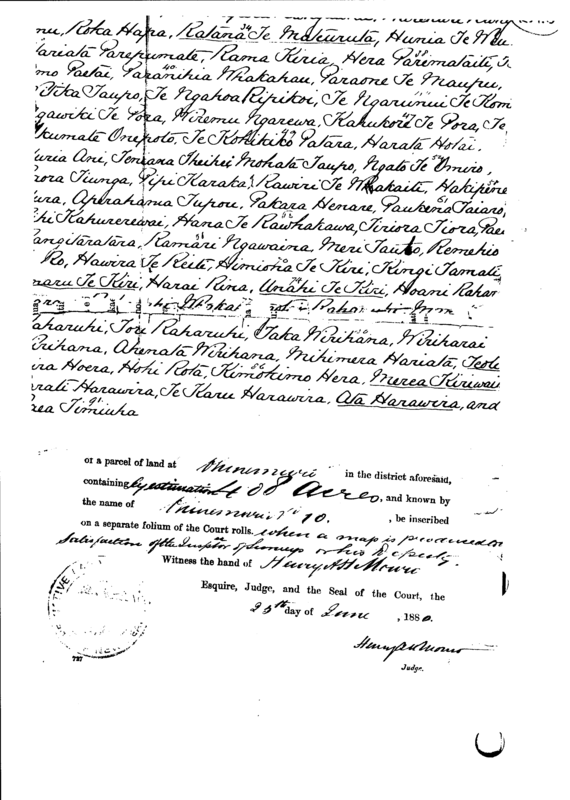 nu, Roka Hapa, Ratana Te Makuruta, Hunia Te
Hariata Parepumate, Rama Kiria, Hera Parimataiti,
mo Paetai, Paranihia Whakahau, Paraone Te Maupu,
Pika Taupo, Te Ngahoa Ripikoi, Te Ngarunui Te Kom
gawiki Te Pora, Wiremu Ngarewa, Kahukore Te Pora, Te
kumate Onepoto, Te Kohikiko Patara, Harata Hotai,
uria Ani, Mohata Taupo, Ngato Te Omiro,
ora Tiunga, Pipi Karaka, Rawiri Te Whakaiti, Hakipene
ura, Aperahama Tupou, Pakara Henare, Paukena Taiaro,
hi Kahurerewai, Hana Te Rawhakawa, Tiriora Tiora, Pae
angitaratara, Ramari Ngawaina, Meri Tauto, Remehio
Ro, Hawira Te Reiti, Himiona Te Kiri, Kingi Tamati
naru Te Kiri, Harai Rina, Unahi Te Kiri, Hoani Rahar
aharuhi, Tori Raharuhi, Taka Wirihana, Wiriharai
irihana, Ahenata Wirihana, Mihimera Hariata,
ira Hoera, Hohi Rota, Kimokimo Hera, Merea Kiriwai
rati Harawira, Te Karu Harawira, Ata Harawira, and
rea Timiuha
91
or a parcel of land at Ohinemuri in the district aforesaid,
containing by estimation 408 acres, and known by
the name of Ohinemuri No 10. , be inscribed
on a separate folium of the Court rolls. when a map is produced to
satisfaction of the Inspector of Surveys or his Deputy.
Witness the hand of Henry A H Monro
Esquire, Judge, and the Seal of the Court, the
25th day of June , 1880.
Henry A H Monro
Judge.
727